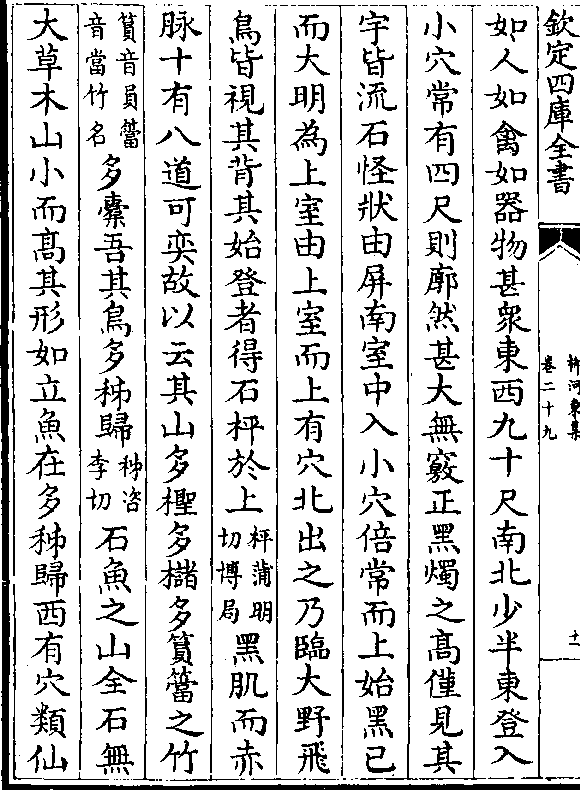 欽定四庫全書
柳河東集
卷二十九
十一
如人如禽如器物甚衆東西九十尺南北少半東登入
小穴常有四尺則廓然甚大無竅正黑燭之髙僅見其
宇皆流石怪狀由屏南室中入小穴倍常而上始黑已
而大明為上室由上室而上有穴北出之乃臨大野飛
鳥皆視其背其始登者得石枰於上枰蒲明切博局黑肌而赤
脉十有八道可奕故以云其山多檉多櫧多篔簹之竹
篔音員簹音當竹名多槖吾其鳥多秭歸秭咨李切石魚之山全石無
大草木山小而髙其形如立魚在多秭歸西有穴類仙